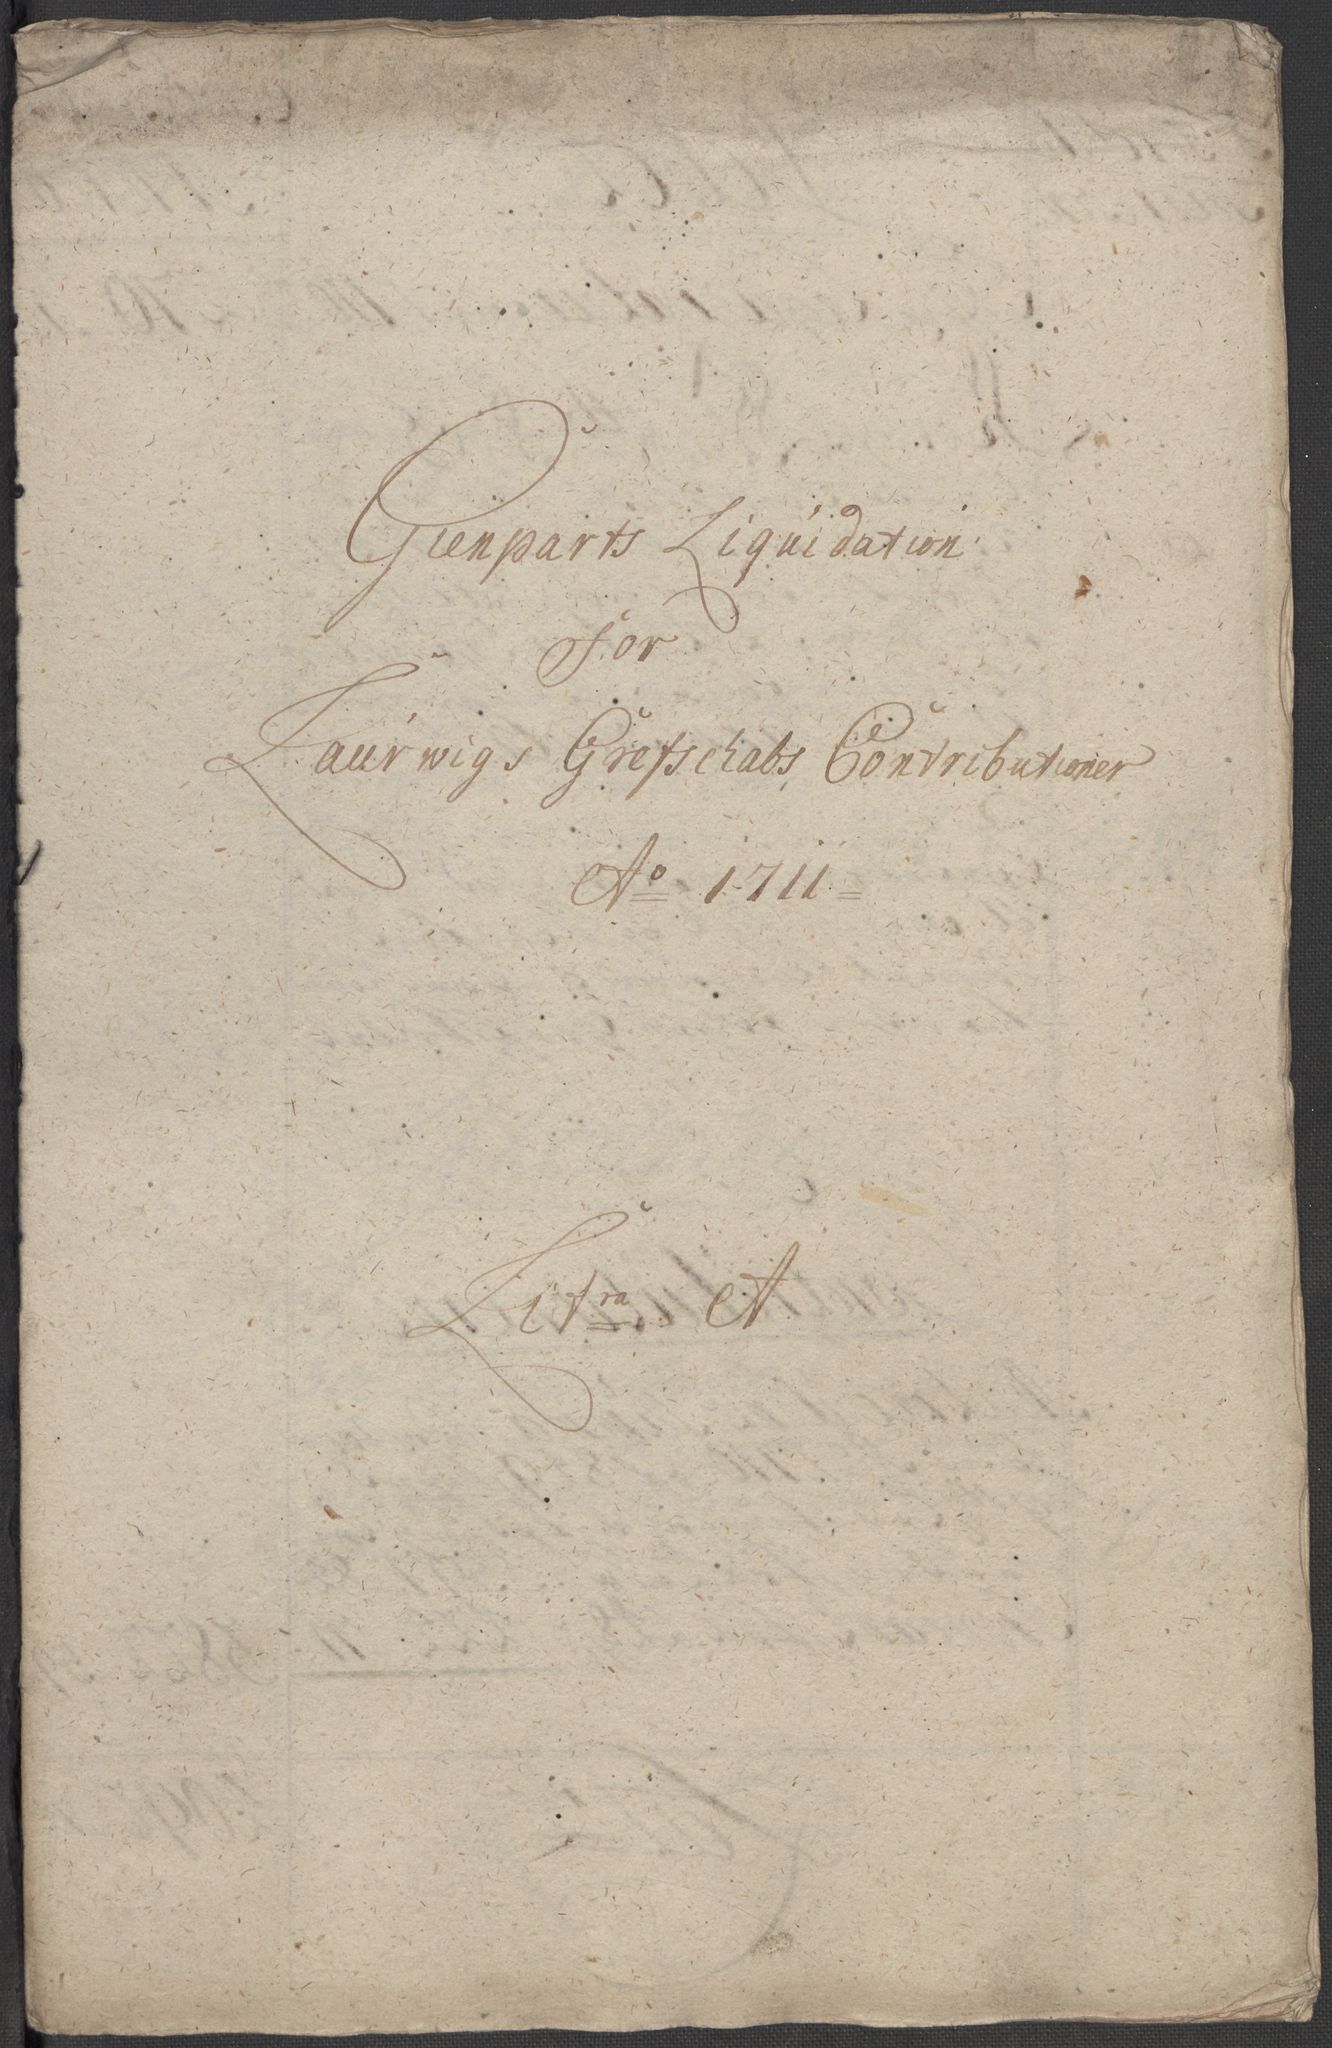 Gienparts Liquidation
for
Laurwigs Grefschabs Contributioner
Ao 1711
Litra A